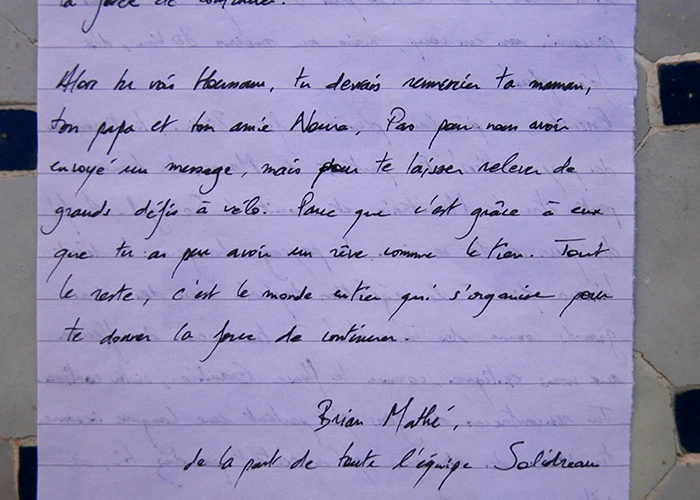 la force de continuer.
Alors tu vois Houmam, tu devrais remercier ta maman,
ton papa et ton amie Noura, Pas pour nous avoir
envoyé un message, mais pour te laisser relever de
grands défis à vélo. Parce que c'est grâce à eux
que tu as peu avoir un rêve comme le tien. Tout
le reste, c'est le monde entier qui s'organise pour
te donner la force de continuer.
Brian Mathé,
de la part de toute l'équipe Solidream